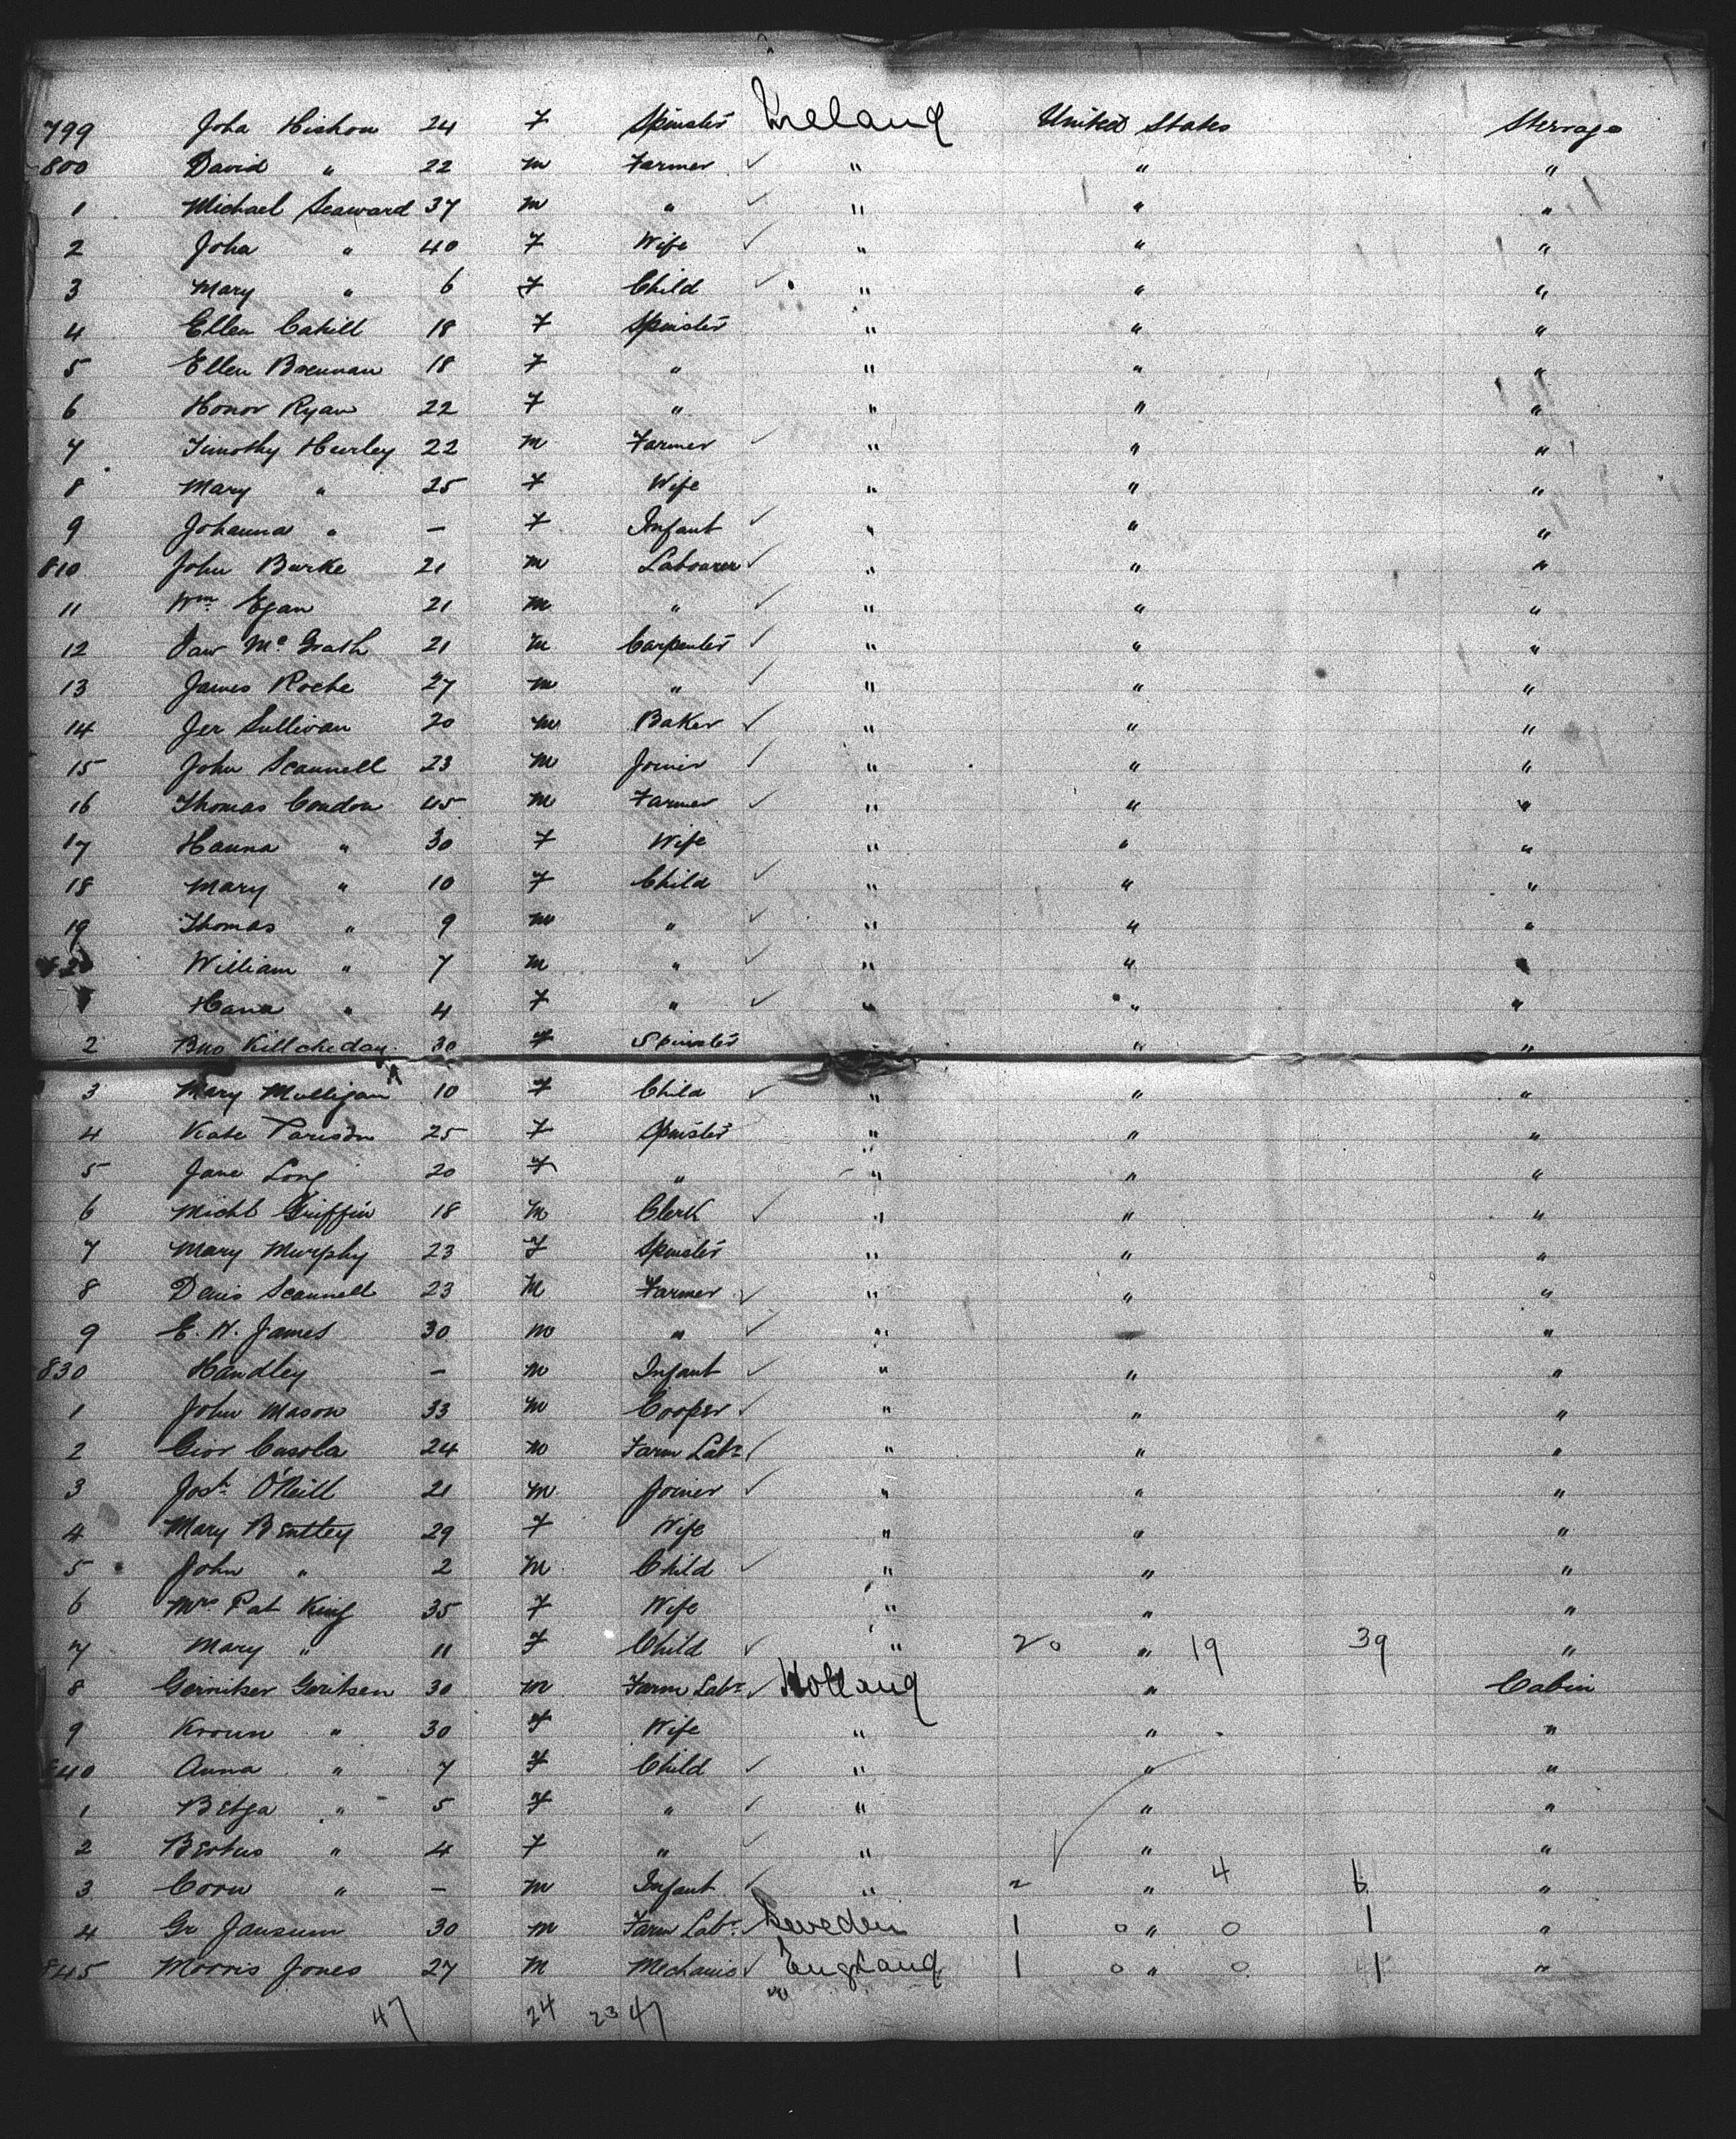 799 Joha Hishon 24 F Spinster Ireland United States Sterrage
800 David " 22 m Farmer " " "
1 Michael Seaward 37 m " " " "
2 Joha " 40 F Wife " " "
3 Mary " 6 F Child " " "
4 Ellen Cahill 18 F Spinster " " "
5 Ellen Brennan 18 F " " " "
6 Honor Ryan 22 F " " " "
7 Timothy Hurley 22 m Farmer " " "
8 Mary " 25 F Wife " " "
9 Johanna " — F Infant " " "
810 John Burke 21 m Labourer " " "
11 Wm Egan 21 m " " " "
12 Mc Grath 21 m Carpenter " " "
13 James Roche 27 m " " " "
14 Jer Sullivan 20 m Baker " " "
15 John Scannell 23 m Joiner " " "
16 Thomas Condon 45 m Farmer " " "
17 Hanna " 30 F Wife " " "
18 Mary " 10 F Child " " "
19 Thomas " 9 m " " " "
William " 7 m " " " "
Hana " 4 F " " " "
2 30 F Spinster " "
3 Mary Mulligan 10 F Child " " "
4 Kate 25 F Spinster " " "
5 Jane Long 20 F " " " "
6 Michl Griffin 18 m Clerk " " "
7 Mary Murphy 23 F Spinster " " "
8 Denis Scannell 23 m Farmer " " "
9 E. W. James 30 m " " "
830 Handley — m Infant " " "
1 John Mason 33 m Cooper " " "
2 Gior Casola 24 m Farm Labr " " "
3 Josh O'Neill 21 m Joiner " " "
4 Mary Bentley 29 F Wife " " "
5 John " 2 m Child " " "
6 Mrs Pat King 35 F Wife " " "
7 Mary " 11 F Child " 20 " 19 39 "
8 Geritsen 30 m Farm Labr Holland " Cabin
9 Kroun " 30 F Wife " " "
840 Anna " 7 F Child " " "
1 Betja " 5 F " " " "
2 Bertus " 4 F " " " "
3 Corn " — m Infant " 2 " 4 6 "
4 Gr Jansum 30 m Farm Labr Sweden 1 0 " 0 1 "
845 Morris Jones 27 m Mechanic England 1 0 " 0 1 "
47 24 23 47